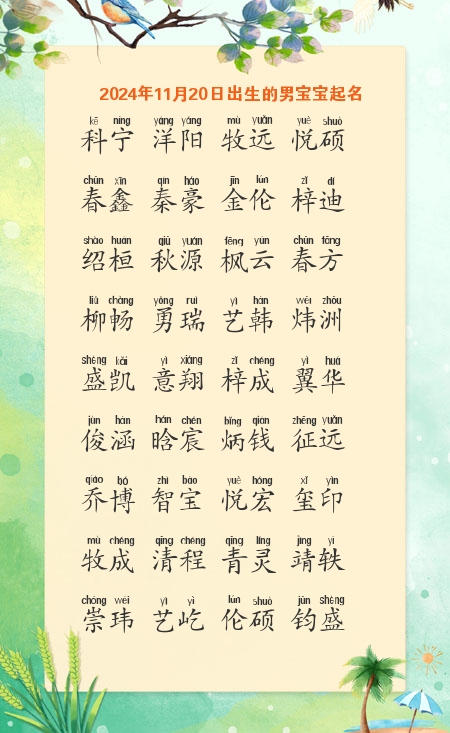 2024年11月20日出生的男宝宝起名
kē níng yáng yáng mù yuǎn yuè shuò
科宁 洋阳 牧远 悦硕
chūn xīn qín háo jīn lún zǐ dí
春鑫 秦豪 金伦 梓迪
shào huán qiū yuán fēng yún chūn fāng
绍桓 秋源 枫云 春方
liǔ chàng yǒng ruì yì hán wěi zhōu
柳畅 勇瑞 艺韩 炜洲
shèng kǎi yì xiáng zǐ chéng yì huá
盛凯 意翔 梓成 翼华
jùn hán hán chén bǐng qián zhēng yuǎn
俊涵 晗宸 炳钱 征远
qiáo bó zhì bǎo yuè hóng xǐ yìn
乔博 智宝 悦宏 玺印
mù chéng qīng chéng qīng líng jìng yì
牧成 清程 青灵 靖轶
chóng wěi yì yì lún shuò jūn shèng
崇玮 艺屹 伦硕 钧盛